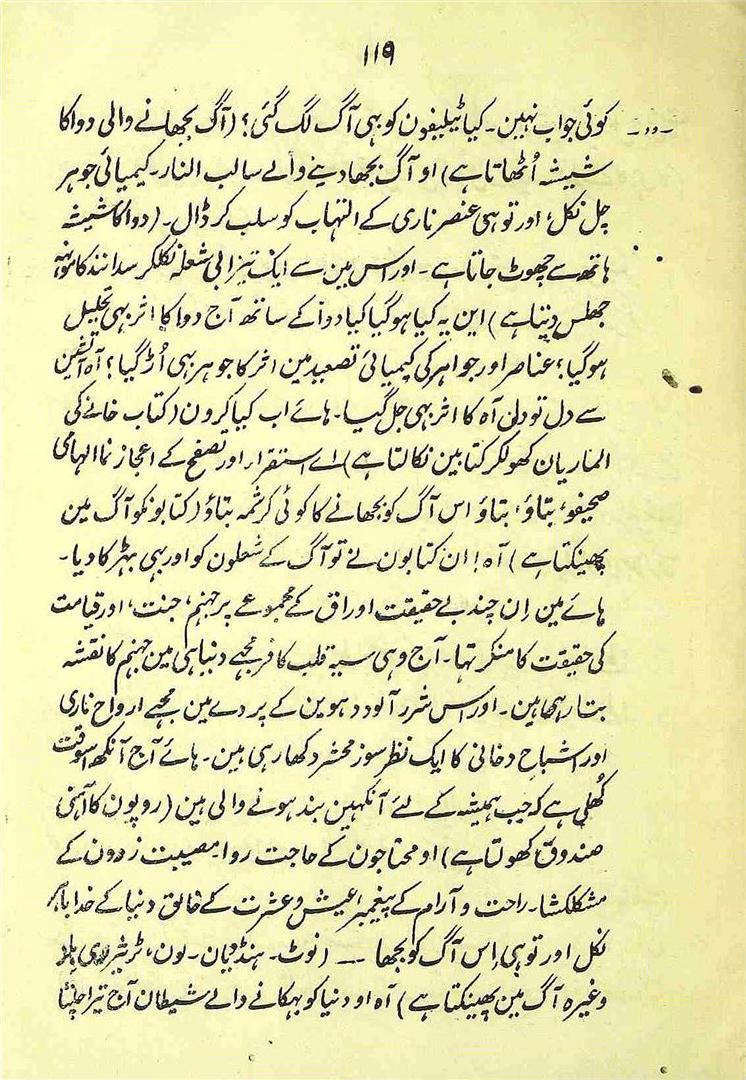 ۱۱۹
کوئی جواب نہین۔ کیا ٹیلیفون کو بہی آگ لگ گئی؟ (آگ بجھانے والی دوا کا
شیشہ اُٹھاتا ہے) او آگ بجھا دینے والے سالب النار۔ کیمیائی جوہر
چل نکل، اور تو ہی عنصر ناری کے التہاب کو سلب کر ڈال۔ (دوا کا شیشہ
ہاتھ سے چھوٹ جاتا ہے۔ اور اس مین سے ایک تیزابی شعلہ نکلکر سدانند کا مونہہ
جھلس دیتا ہے) این یہ کیا ہو گیا کیا دوا کے ساتھ آج دوا کا اثر بہی تحلیل
ہو گیا؟ عناصر اور جواہر کی کیمیائی تصعید مین اثر کا جوہر بہی اُڑ گیا؟ آہ آتشین
سے دل تو دل آہ کا اثر بہی جل گیا۔ ہائے اب کیا کرون (کتاب خانے کی
الماریان کھولکر کتابین نکالتا ہے) اے استقرار اور تصفح کے اعجاز نما الہامی
صحیفو، بتاؤ، بتاؤ اس آگ کو بجھانے کا کوئی کرشمہ بتاؤ (کتابونکو آگ مین
پھینکتا ہے) آہ! ان کتابون نے تو آگ کے شعلون کو اور بہی بہڑکا دیا۔
ہائے مین اِن چند بے حقیقت اوراق کے مجموعے پر جہنم، جنت، اور قیامت
کی حقیقت کا منکر تہا۔ آج وہی سیہ قلب کافر مجہے دنیا ہی مین جہنم کا نقشہ
بتا رہا ہین۔ اور اس شرر آلود دہوین کے پردے مین مجہے ارواح ناری
اور اشباح دخانی کا ایک نظر سوز محشر دکھا رہی ہین۔ ہائے آج آنکھ اسوقت
کُھلی ہے کہ جب ہمیشہ کے لئے آنکہین بند ہونے والی ہین (روپون کا آہنی
صندوق کھولتا ہے) او محتاجون کے حاجت روا۔ مصیبت زدون کے
مشکلکشا۔ راحت و آرام کے پیغمبر، عیش و عشرت کے خالق دنیا کے خدا باہر
نکل اور تو ہی اِس آگ کو بجھا ـــ (نوٹ۔ ہنڈیان۔ لون، ٹریژری
وغیرہ آگ مین پھینکتا ہے) آہ او دنیا کو بہکانے والے شیطان آج تیرا